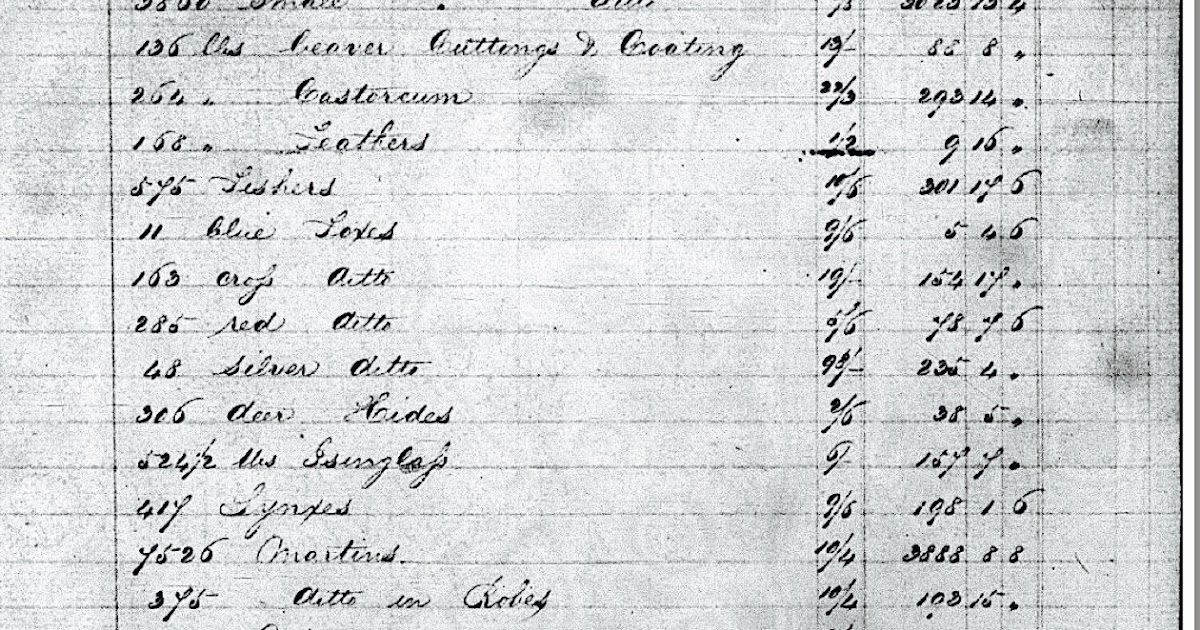 3860 Small " ditto 3023 13 4
136 lbs beaver Cuttings & Coating 13/- 88 8 "
264 " Castoreum 22/3 293 14 "
168 " Feathers 1/2 9 16 "
575 Fishers 10/6 301 17 6
11 blue Foxes 9/6 5 4 6
163 cross ditto 19/- 154 17 "
285 red ditto 5/6 78 7 6
48 silver ditto 98/- 235 4 "
306 deer Hides 2/6 38 5 "
524 1/2 lbs Isinglass 6/- 157 7 "
417 Lynxes 9/6 198 1 6
7526 Martins 10/4 3888 8 8
375 ditto in Robes 10/4 193 15 "